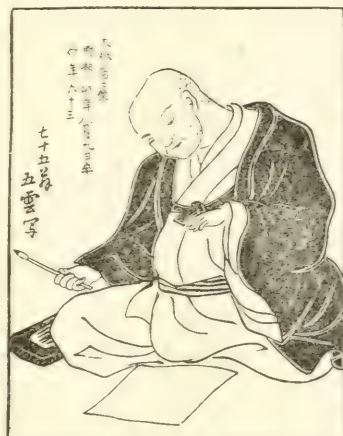 明和 卯年八月九日卒
行年六十三
七十五翁
五雲写